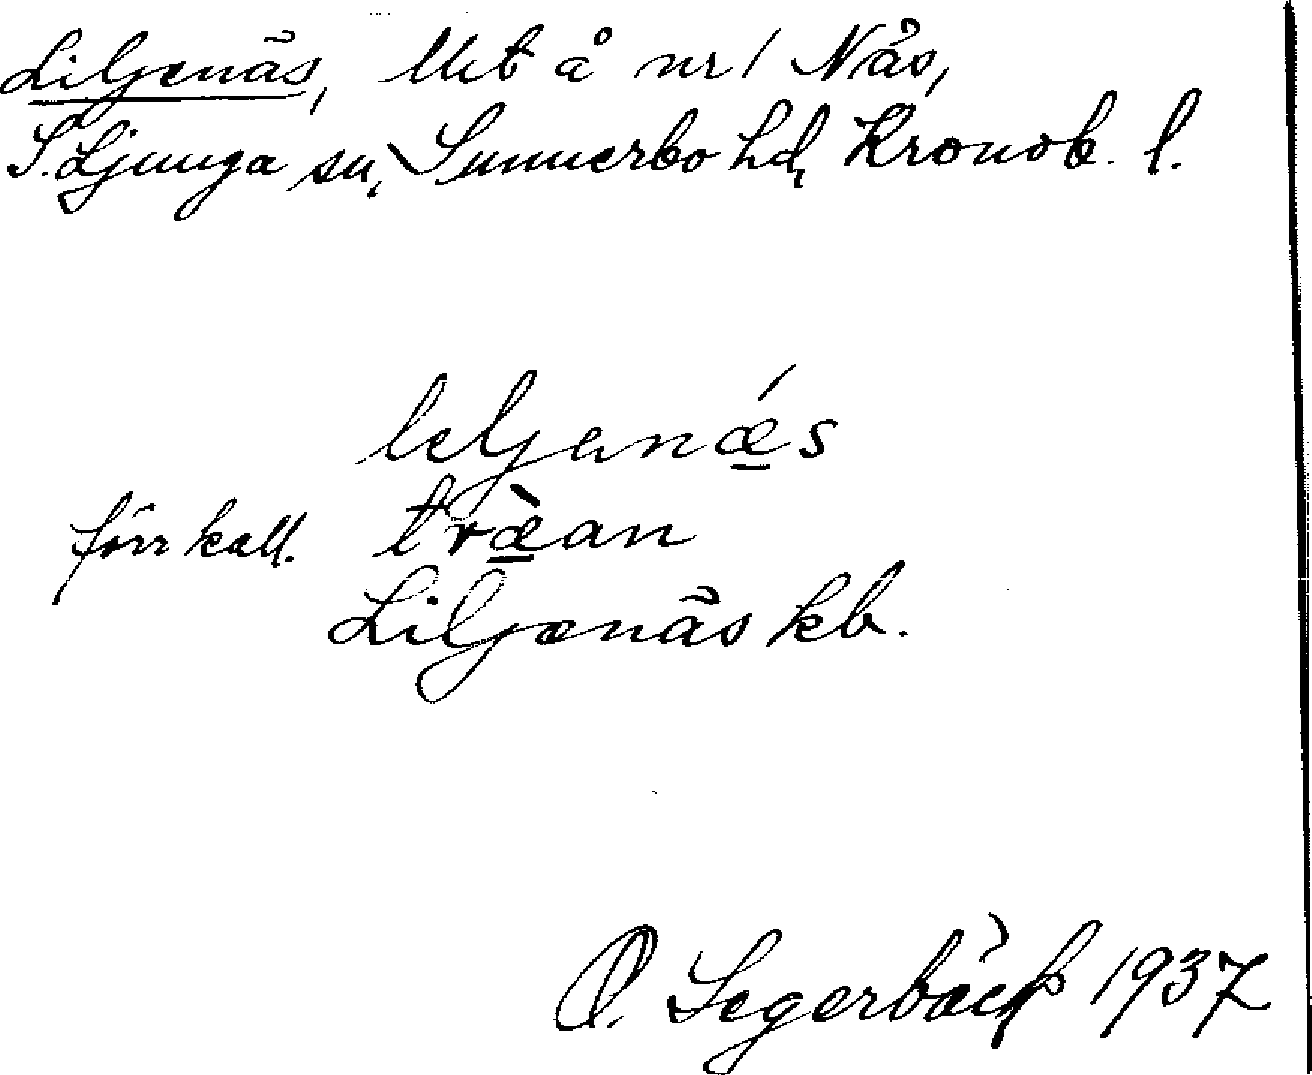 Liljenäs, Utet å nr 1 Nås,
S. Ljunga sn, Sunnerbo hd, Kronob. l.
leljenǽ̱s
förr kall. træ̱̀an
Liljenäs kb.
O. Segerbäck 1937